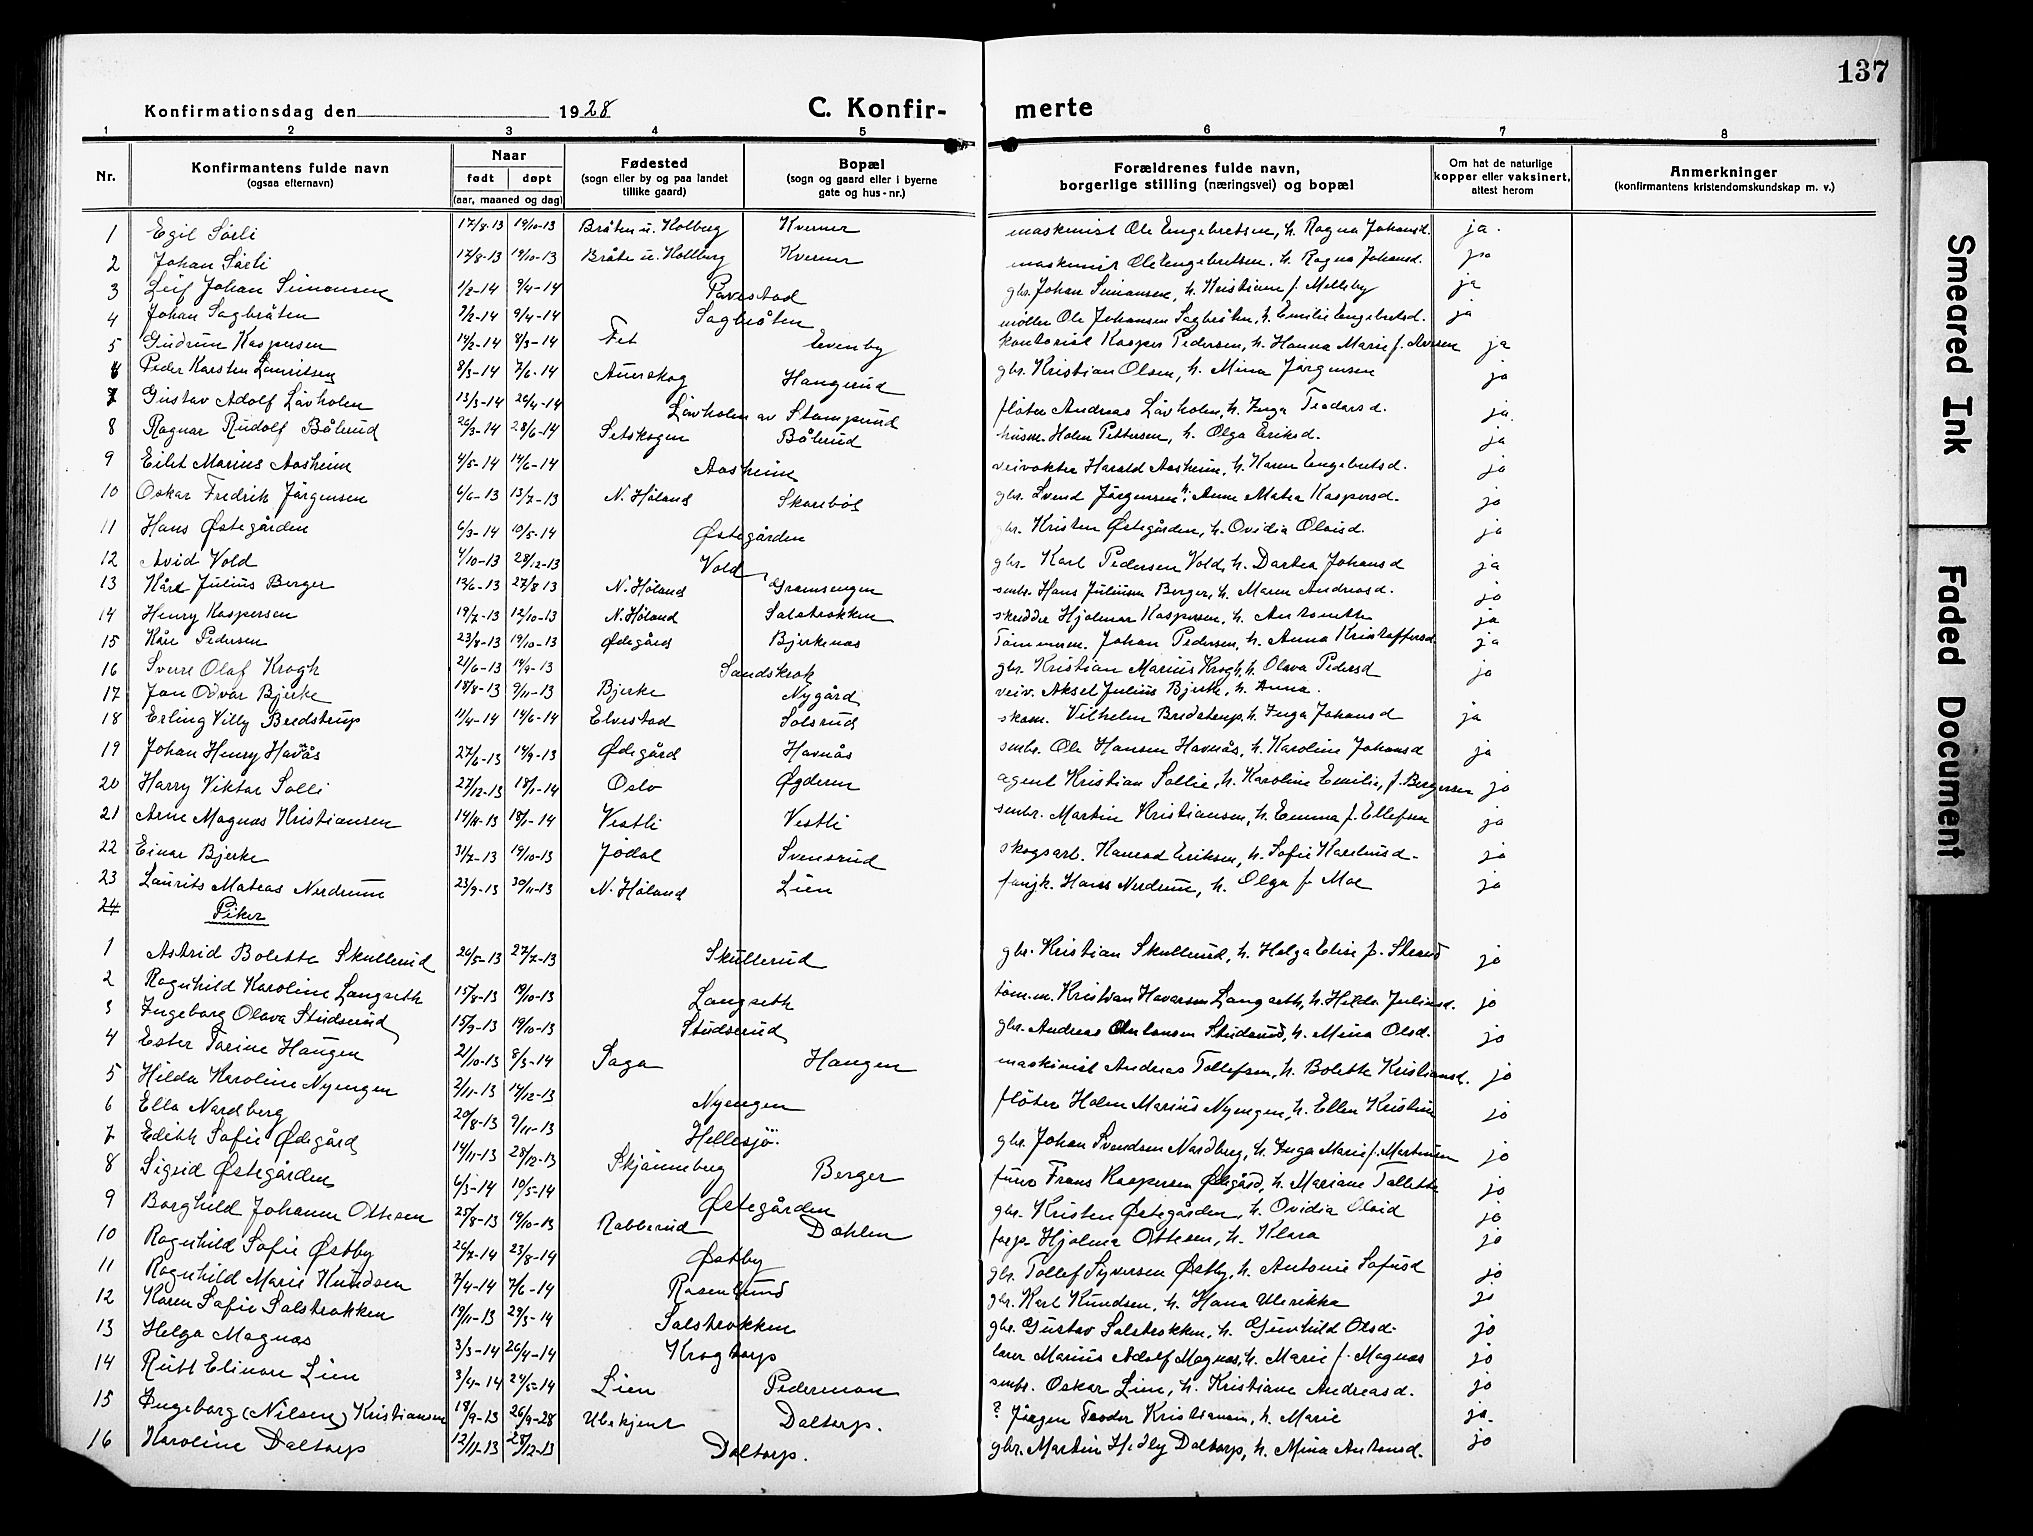 137
Konfirmationsdag den 1928 C. Konfir- merte
1 2 3 4 5 6 7 8
Nr. Konfirmantens fulde navn (ogsaa efternavn) Naar født døpt (aar, maaned og dag) Fødested (sogn eller by og paa landet tillike gaard) Bopæl (sogn og gaard eller i byerne gate og hus-nr.) Forældrenes fulde navn, borgerlige stilling (næringsvei) og bopæl Om hat de naturlige kopper eller vaksinert, attest herom Anmerkninger (konfirmantens kristendomskundskap m. v.)
1 Egil Sørli 17/8-13 19/10-13 Bråten u. Kolberg Kverner maskinist Ole Engebretsen, h. Ragna Johansd. ja.
2 Johan Sørli 17/8-13 19/10-13 Bråte u. Kollberg Kverner maskinist Ole Engebretsen, h. Ragna Johansd. ja
3 Leif Johan Simonsen 1/2-14 9/4-14 gbr. Johan Simonsen, h. Kristiane f. Melleby ja
4 Johan Sagbråten 7/2-14 9/4-14 Sagbråten møller Ole Johansen Sagbråten, h. Emilie Engebretsd. ja
5 Gudrun Kaspersen 14/2-14 8/3-14 Fet Evenby kontorist Kasper Pedersen, h. Hanna Marie f. ja
6 Peder Karsten Lauritsen 8/3-14 7/6-14 Aurskog Haugerud gbr. Kristian Olsen, h. Mina Jørgensen ja
7 Gustav Adolf Løvholen 13/3-14 26/4-14 Løvholen av Stomperud fløter Andreas Løvholen, h. Inga Teodorsd. ja.
8 Ragnar Rudolf Bålerud 26/3-14 28/6-14 Setskogen Bålerud husm. Holm Pettersen, h. Olga Eriksd. ja
9 Eilet Marius Aasheim 4/5-14 14/6-14 Aasheim veivokter Harald Aasheim, h. Karen Engebretsd. ja
10 Oskar Fredrik Jørgensen 6/6-13 13/7-13 N. Høland Skarebøl gbr. Svend Jørgensen, h. Anne Matea Kaspersd. ja
11 Hans Østegården 6/3-14 10/5-14 Østegården gbr. Kristen Østegården, h. Ovidia Olausd. ja
12 Avid Vold 4/10-13 28/12-13 Vold gbr. Karl Pedersen Vold, h. Dortea Johansd ja
13 Kåre Julius Berger 13/6-13 27/8 13 N. Høland Gransengen smbr. Hans Juliusen Berger, h. Maren Andreasd. ja
14 Henry Kaspersen 19/7-13 12/10-13 N. Høland Solstrokken skredder Hjalmar Kaspersen, h. Antonette ja
15 Kåre Pedersen 23/8-13 19/10-13 Ødegård Bjerknes Tømmerm. Johan Pedersen, h. Anna Kristoffersd ja
16 Sverre Olaf Krogh 21/6-13 14/9-13 Sandskrok gbr. Kristian Marius Krogh, h. Olava Pedersd ja
17 Jan Odvar Bjerke 18/8-13 9/11-13 Bjerke Nygård veiv. Aksel Julius Bjerke, h. Anna.
18 Erling Villy Bredstrup 11/4-14 14/6-14 Elvestad Solsrud skom. Vilhelm Bredstrup, h. Inga Johansd ja
19 Johan Henry Havnås 27/6-13 14/9-13 Ødegård Havnås smbr. Ole Hansen Havnås, h. Karoline Johansd ja
20 Harry Viktor Solli 27/12-13 18/1-14 Oslo Øgderen agent Kristian Sollie, h. Karoline Emilie, f. Bergersen ja
21 Arne Magnus Kristiansen 14/11-13 18/1-14 Vestli Vestli smbr. Martin Kristiansen, h. Emma f. Ellefsen ja
22 Einar Bjerke 31/7-13 19/10-13 Jødal Svensrud skogsarb. Konrad Eriksen, h. Sofie Kareliusd. ja
23 Laurits Mateas Nerdrum 23/9-13 30/11-13 N. Høland Lien fanjk. Hans Nerdrum, h. Olga f. Moe ja
24 Piker
1 Astrid Bolette Skullerud 26/5-13 27/7-13 Skullerud gbr. Kristian Skullerud, h. Helga Elise f. Strand ja
2 Ragnhild Karoline Langseth 15/8-13 19/10-13 Langseth tøm.m. Kristian Havarsen Langseth, h. Hilda Juliusd. ja
3 Ingeborg Olava Studserud 15/9-13 19/10-13 Studserud gbr. Andreas Antonsen Studserud, h. Mina Olsd. ja
4 Ester Torine Haugen 21/10-13 8/3-14 Saga Haugen maskinist Andreas Tollefsen, h. Bolette Kristiansd. ja
5 Hilda Karoline Nyengen 2/11-13 14/12-13 Nyengen fløter Holm Marius Nyengen, h. Ellen Kristine ja
6 Ella Nordberg 20/8-13 9/11-13 Hellesjø gbr. Johan Svendsen Nordberg, h. Inga Marie f. Martinsen ja
7 Edith Sofie Ødegård 14/11-13 28/12-13 Skjønneberg Berger furer Frans Kaspersen Ødegård, h. Mariane Tollette ja
8 Sigrid Østegården 6/3-14 10/5-14 Østegården gbr. Kristen Østegården, h. Ovidia Olsid ja
9 Borghild Johanne Ottesen 25/8-13 19/10-13 Robberud Dahlen forp. Hjalmar Ottesen, h. Klara ja
10 Ragnhild Sofie Østby 26/7-14 23/8-14 Østby gbr. Tollef Syversen Østby, h. Antonie Sofusd ja
11 Ragnhild Marie Knudsen 7/4-14 7/6-14 Rosenlund gbr. Karl Knudsen, h. Hana Ulrikka ja
12 Karen Sofie Solstrokken 19/11-13 29/3-14 Solstrokken gbr. Gustav Solstrokken, h. Gunhild Olsd. ja
13 Helga Magnæs 3/3-14 26/4-14 Krogtorp lærer Marius Adolf Magnæs, h. Marie f. Magnæs ja
14 Rutt Elinore Lien 3/4-14 24/5-14 Lien Pedermoen smbr. Oskar Lien, h. Kristiane Andreasd. ja
15 Ingeborg (Nilsen) Kristiansen 18/9-13 26/9-28 Ubekjent Daltorp. ? Jørgen Teodor Kristiansen, h. Marie ja.
16 Karoline Daltorp 12/11-13 28/12-13 Daltorp. gbr. Martin Hedly Daltorp, h. Mina Antonsd. ja
Smeared Ink
Faded Document